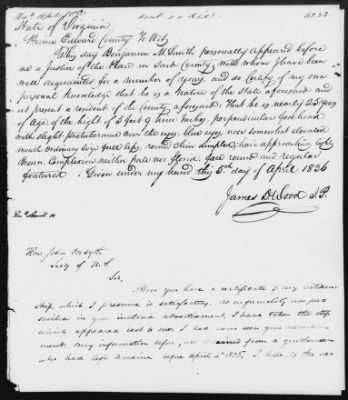 State of Virginia
Prince Edward County To Wit,
This day Benjamin M. Smith personally appeared before
me a Justice of the Peace in Said County with whom I have been
well acquainted for a number of years, and do Certify of my own
personal Knowledge that he is a Native of the State aforesaid and
at present a resident of the County aforesaid. That he is nearly 25 year
of Age of the hight of 5 feet 9 Inches, perpendicular forehead
with slight protuberance over the eyes, blue eyes nose somewhat elevated
mouth ordinary size free lips, round chin dimpled, hair approaching light
Brown, Complexion neither pale nor florid, face round and regular
featured : Given under my hand this 5th day of April 1836
James D. Wood J.P.
Hon John Forsyth
Secty of
Sir,
Above you have a certificate of my citizen
ship, which I presume is satisfactory. As informality was per
in your inclosed advertisement, I have taken the step
which appeared best to me. I had seen your advertise
ment. My information before, was obtained from a gentleman
who had left America since April 1835. I hope to the